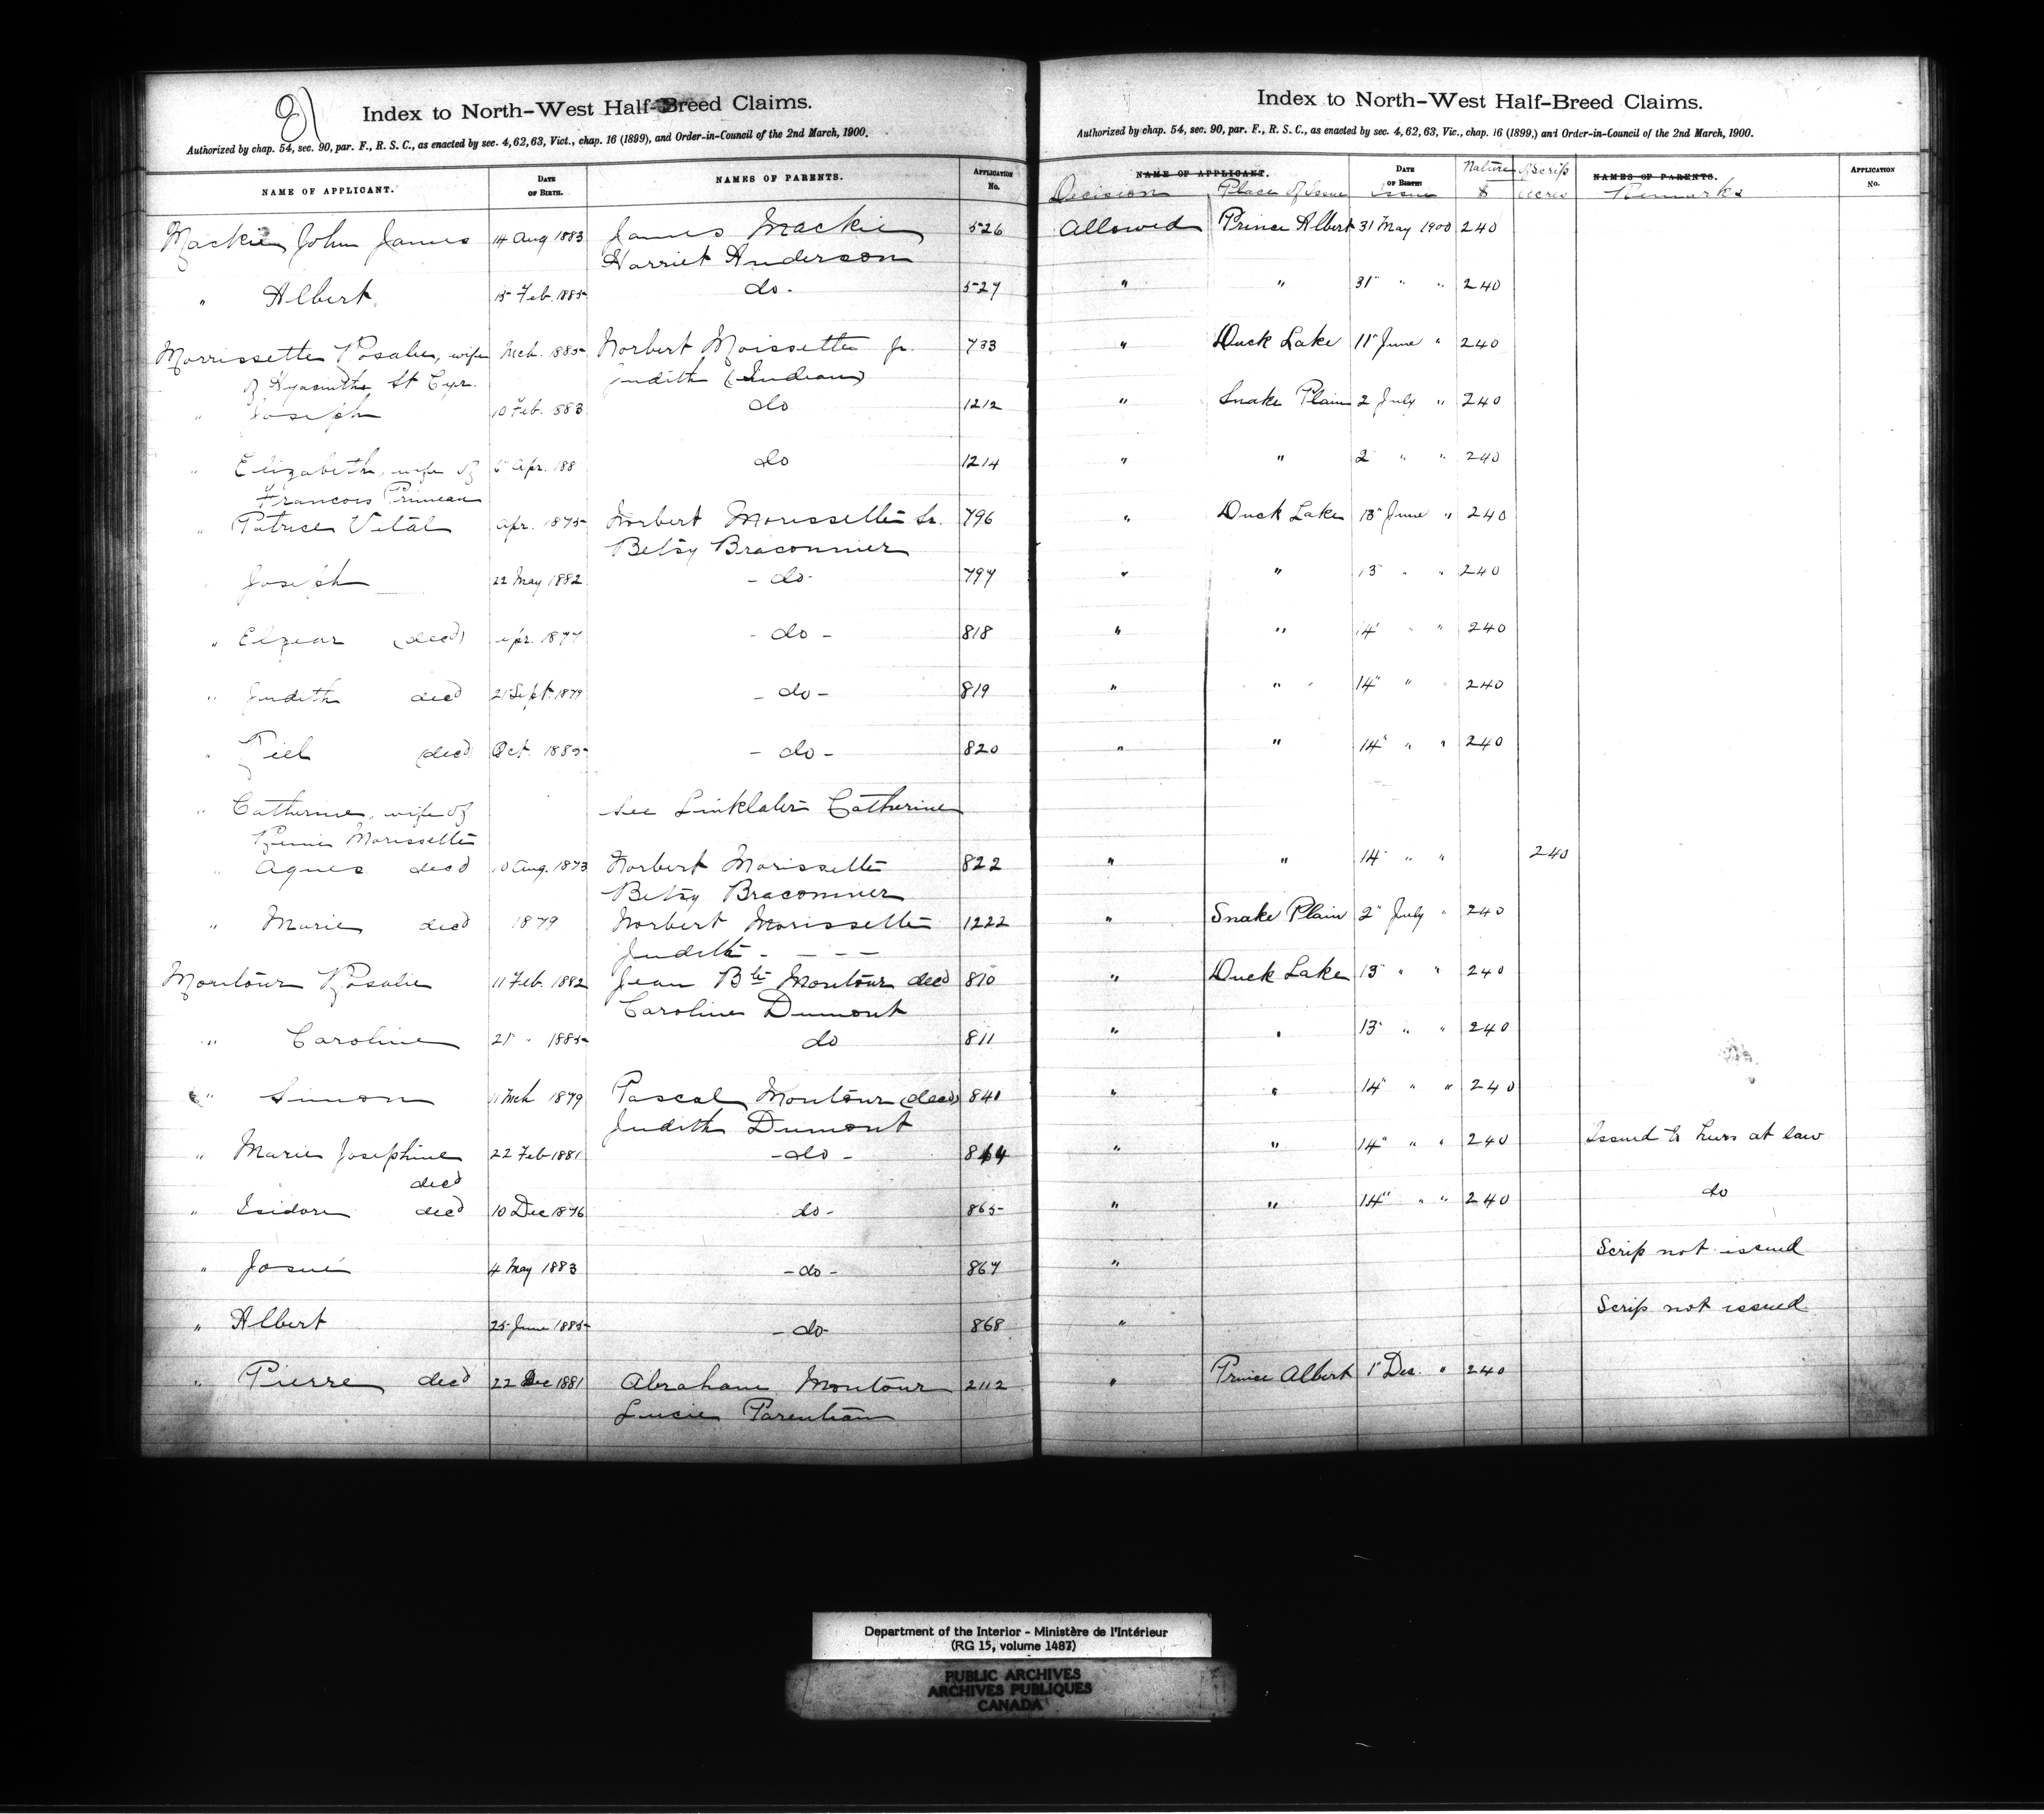 81
Index to North-West Half-Breed Claims.
Authorized by chap. 54, sec. 90, par. F., R. S. C., as enacted by sec. 4, 62, 63, Vict., chap. 16 (1899), and Order-in-Council of the 2nd March, 1900.
NAME OF APPLICANT. DATE OF BIRTH. NAMES OF PARENTS. APPLICATION No.
Mackie, John James 14 Aug 1883 James Mackie 526
Harriet Anderson
" Albert. 15 Feb. 1885 do. 527
Morrissette Rosalie, wife Mch. 1885 Norbert Moissette Jr. 733
of Hyacinthe St Cyr. Judith (Indian)
" Joseph 10 Feb. 1883 do 1212
" Elizabeth, wife of Apr. 188 do 1214
Francois Primeau
" Patrice Vital Apr. 1875 Norbert Morissette Sr. 796
Betsy Braconnier
" Joseph 22 May 1882 - do - 797
" Elzear (decd) Apr. 1877 - do - 818
" Judith decd 21 Sept. 1879 - do - 819
" Riel (decd) Oct. 1885 - do - 820
" Catherine, wife of see Linklater Catherine
Morissette
" Agnes decd 10 Aug. 1873 Norbert Morissette 822
Betsy Braconnier
" Marie decd 1879 Norbert Morissette 1222
Judith - - - -
Montour Rosalie 11 Feb. 1882 Jean Bte Montour decd 810
Caroline Dumont
" Caroline 21 " 1885 do 811
" Simon 11 Mch 1879 Pascal Montour (decd) 840
Judith Dumont
" Marie Josephine 22 Feb 1881 - do - 864
decd
" Isidore decd 10 Dec 1876 do - 865
" Josué 4 May 1883 - do - 867
" Albert 25 June 1885 - do - 868
" Pierre decd 22 Dec 1881 Abraham Montour 2112
Lucie Parenteau
Index to North-West Half-Breed Claims.
Authorized by chap. 54, sec. 90, par. F., R. S. C., as enacted by sec. 4, 62, 63, Vic., chap. 16 (1899,) and Order-in-Council of the 2nd March, 1900.
NAME OF APPLICANT. DATE OF BIRTH. Nature of Scrip NAMES OF PARENTS. APPLICATION No.
Decision Place of Issue Issue $ acres Remarks
Allowed Prince Albert 31 May 1900 240
" " 31 " " 240
" Duck Lake 11 June " 240
" Snake Plain 2 July " 240
" " 2 " " 240
" Duck Lake 13 June " 240
" " 13 " " 240
" " 14 " " 240
" " 14 " " 240
" " 14 " " 240
" " 14 " " 240
" Snake Plain 2 July " 240
" Duck Lake 13 " " 240
" " 13 " " 240
" " 14 " " 240
" " 14 " " 240 Issued to heirs at law
" " 14 " " 240 do
" Scrip not issued
" Scrip not issued
" Prince Albert 1 Dec. " 240
Department of the Interior - Ministère de l'Intérieur
(RG 15, volume 1487)
PUBLIC ARCHIVES
ARCHIVES PUBLIQUES
CANADA